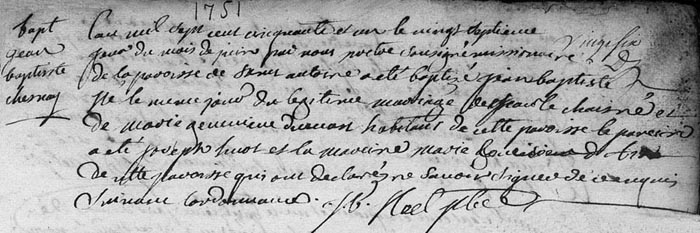 1751
bapt
jean
baptiste
chesnay
L'an mil sept cent cinquante et un le vingt septieme
jour du mois de juin par nous pretre sousigné missionnaire
de la paroisse de Saint antoine a été baptisé jean baptiste
né le meme jour du legitime mariage de le chainé et
de marie genevieve habitans de cette paroisse le parrain
a été joseph huot et la maraine marie
de cette paroisse qui ont declarés ne savoir signer de ce enquis
Suivant l'ordonnance. j. b. Noel ptre